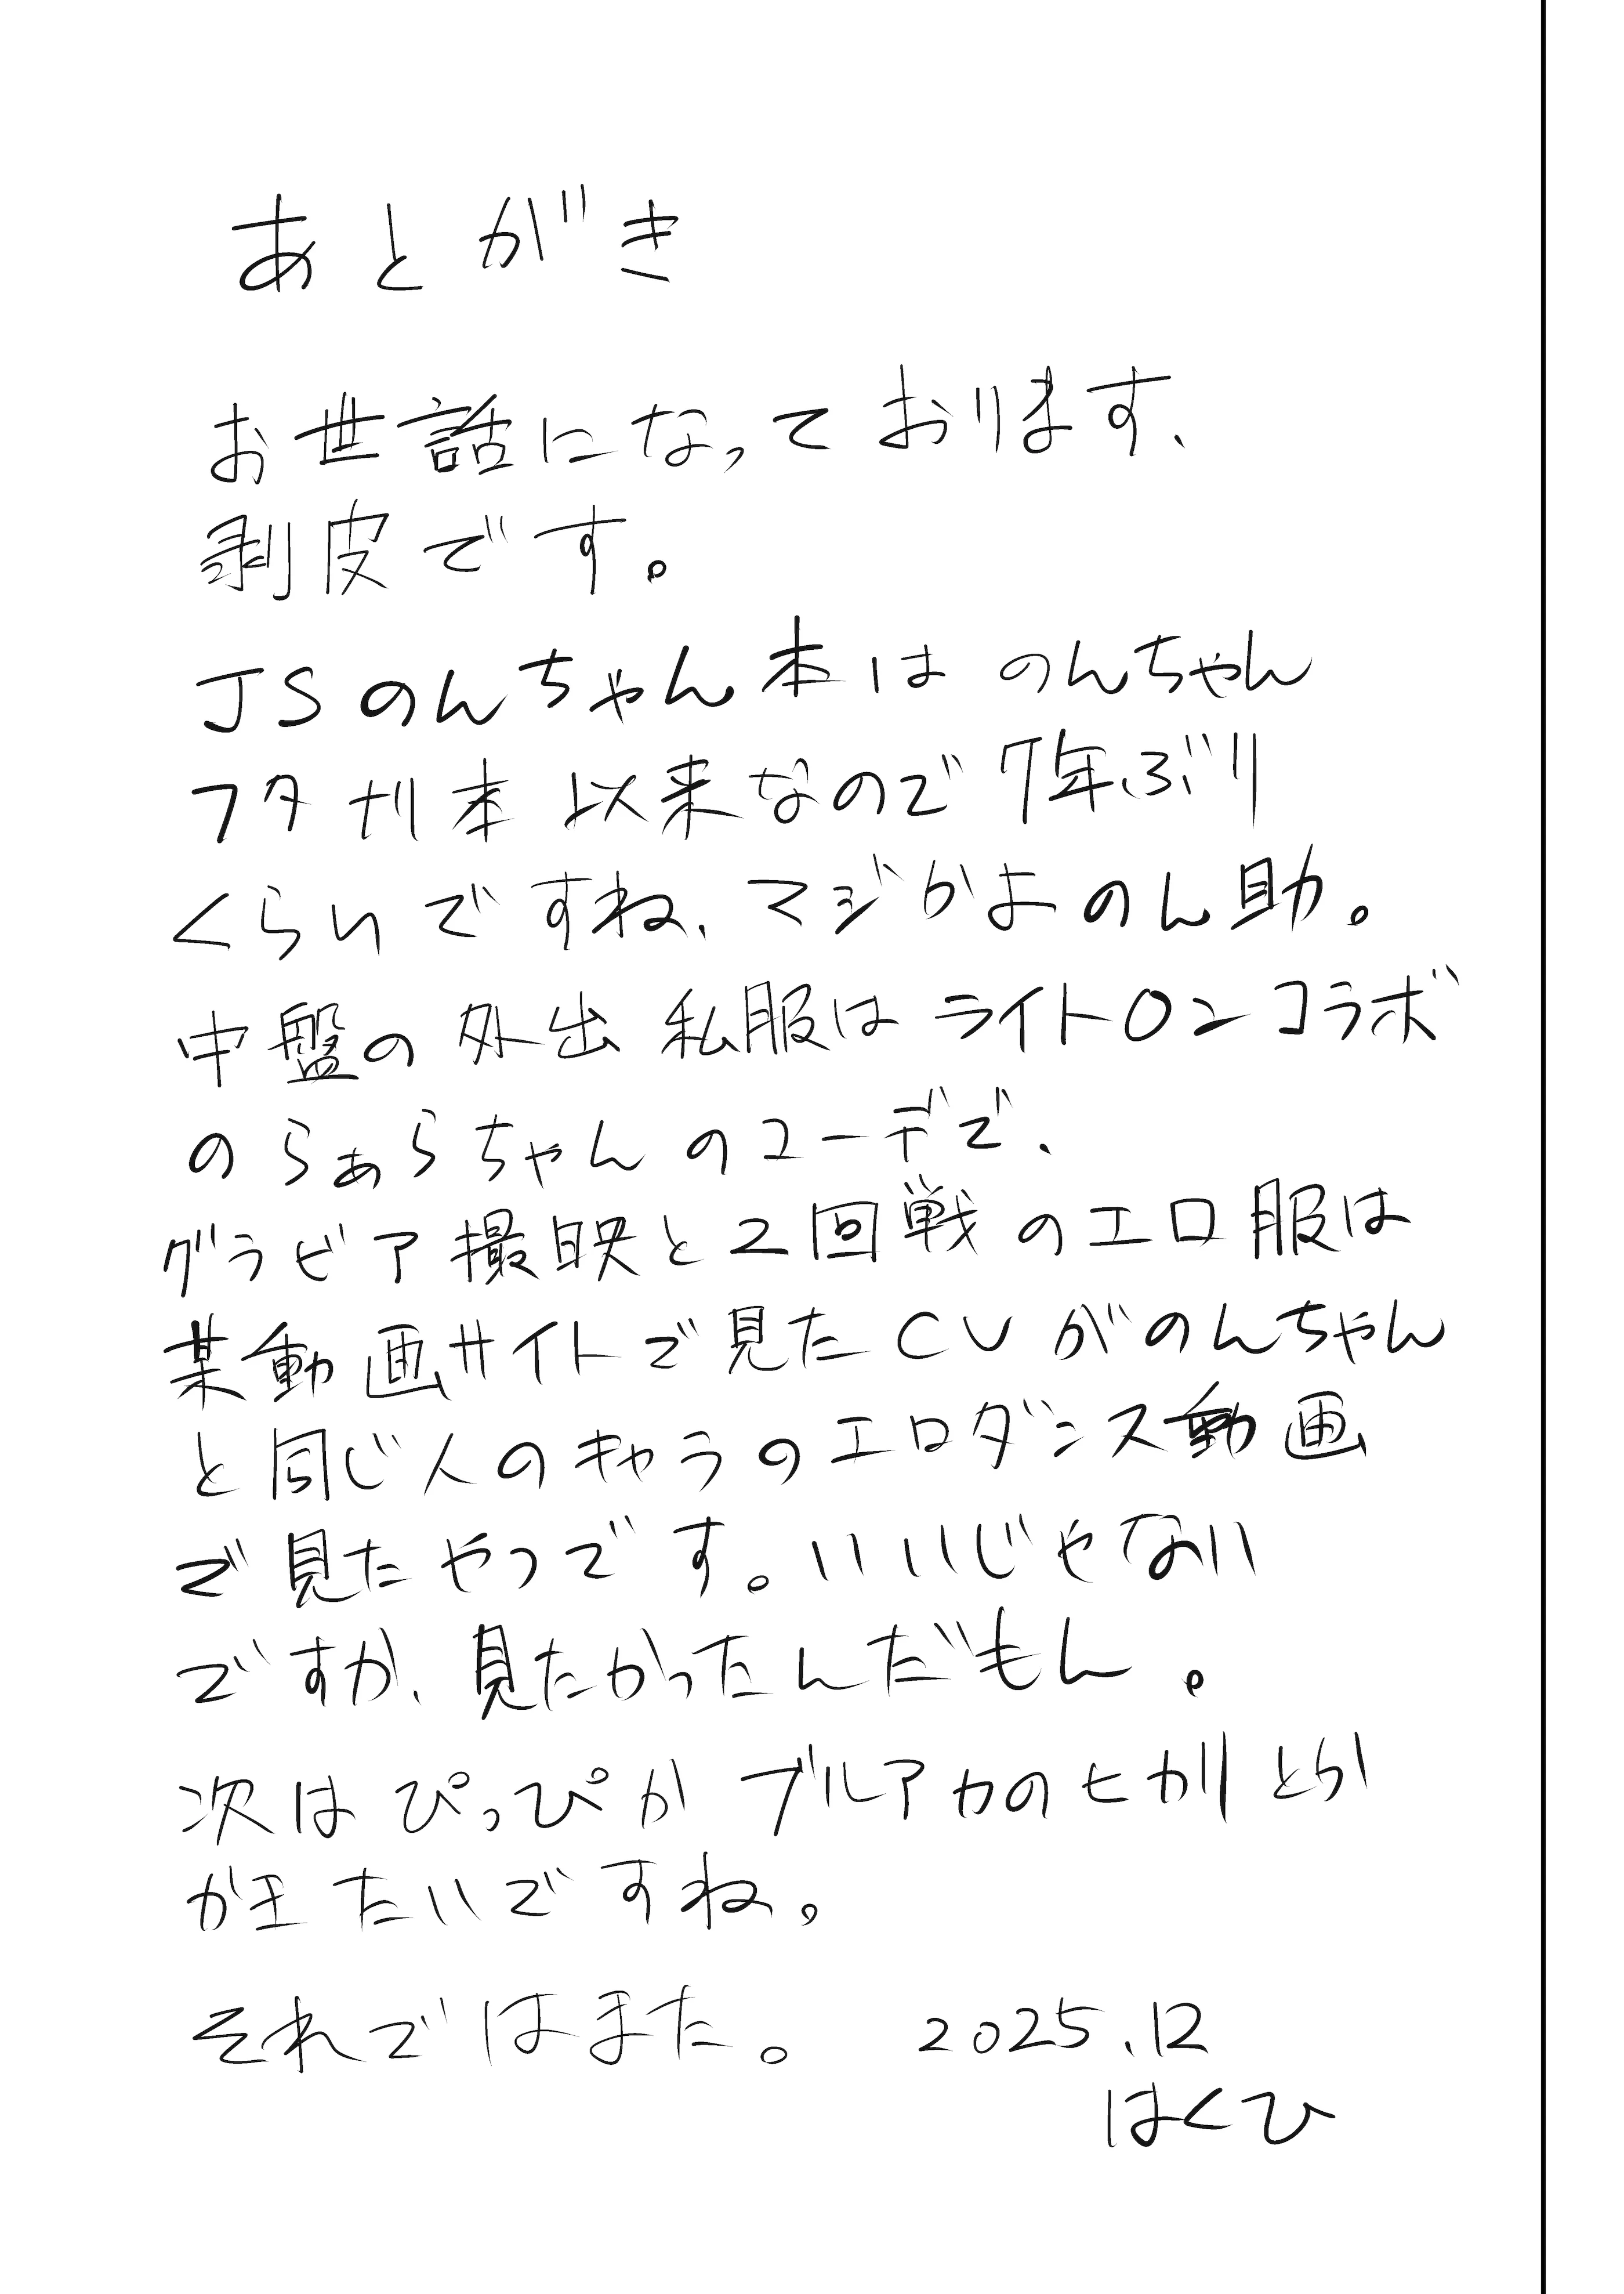 あとがき
お世話になっております、
剥皮です。
JSのんちゃん本はのんちゃん
フタナリ本以来なので7年ぶり
くらいですね、マジかよのん助。
中盤の外出私服はライトOンコラボ
のらぁらちゃんのコーデで、
グラビア撮映と2回戦のエロ服は
某動画サイトで見たCVがのんちゃん
と同じ人のキャラのエロダンス動画
で見たやつです。いいじゃない
ですか、見たかったんだもん。
次はぴっぴかブルアカのヒカリとか
かきたいですね。
それではまた。 2025.12
はくひ